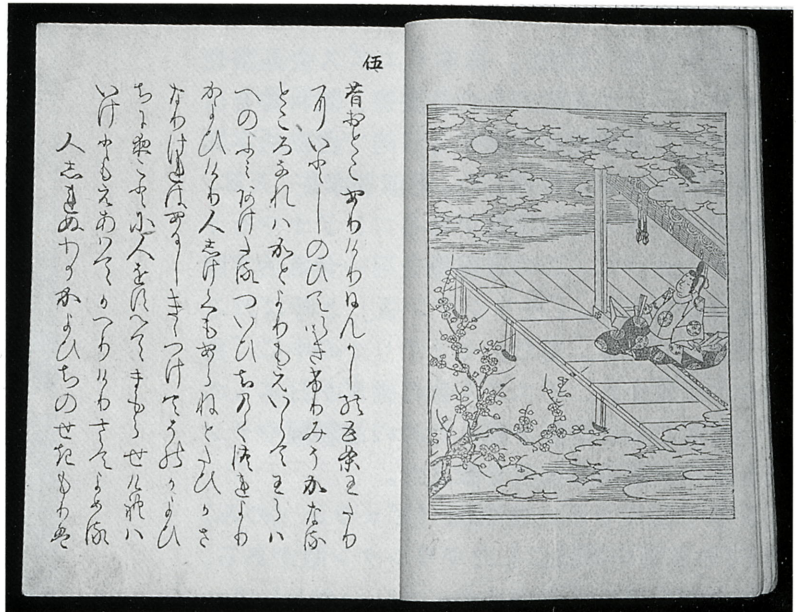 伍
昔おとこありけりひんかしの五条わたり
にいとしのひていきけりみそかなる
ところなれハかとよりもえいらてわらハ
へのふミあけたるついひちのくつれより
かよひけり人しけくもあらねとたひかさ
なりけれはあるしきゝつけてそのかよひ
ちに夜ことに人をすへてまもらせけれハ
いけともえあはてかへりけりさてよめる
人しれぬわかかよひちのせきもりは